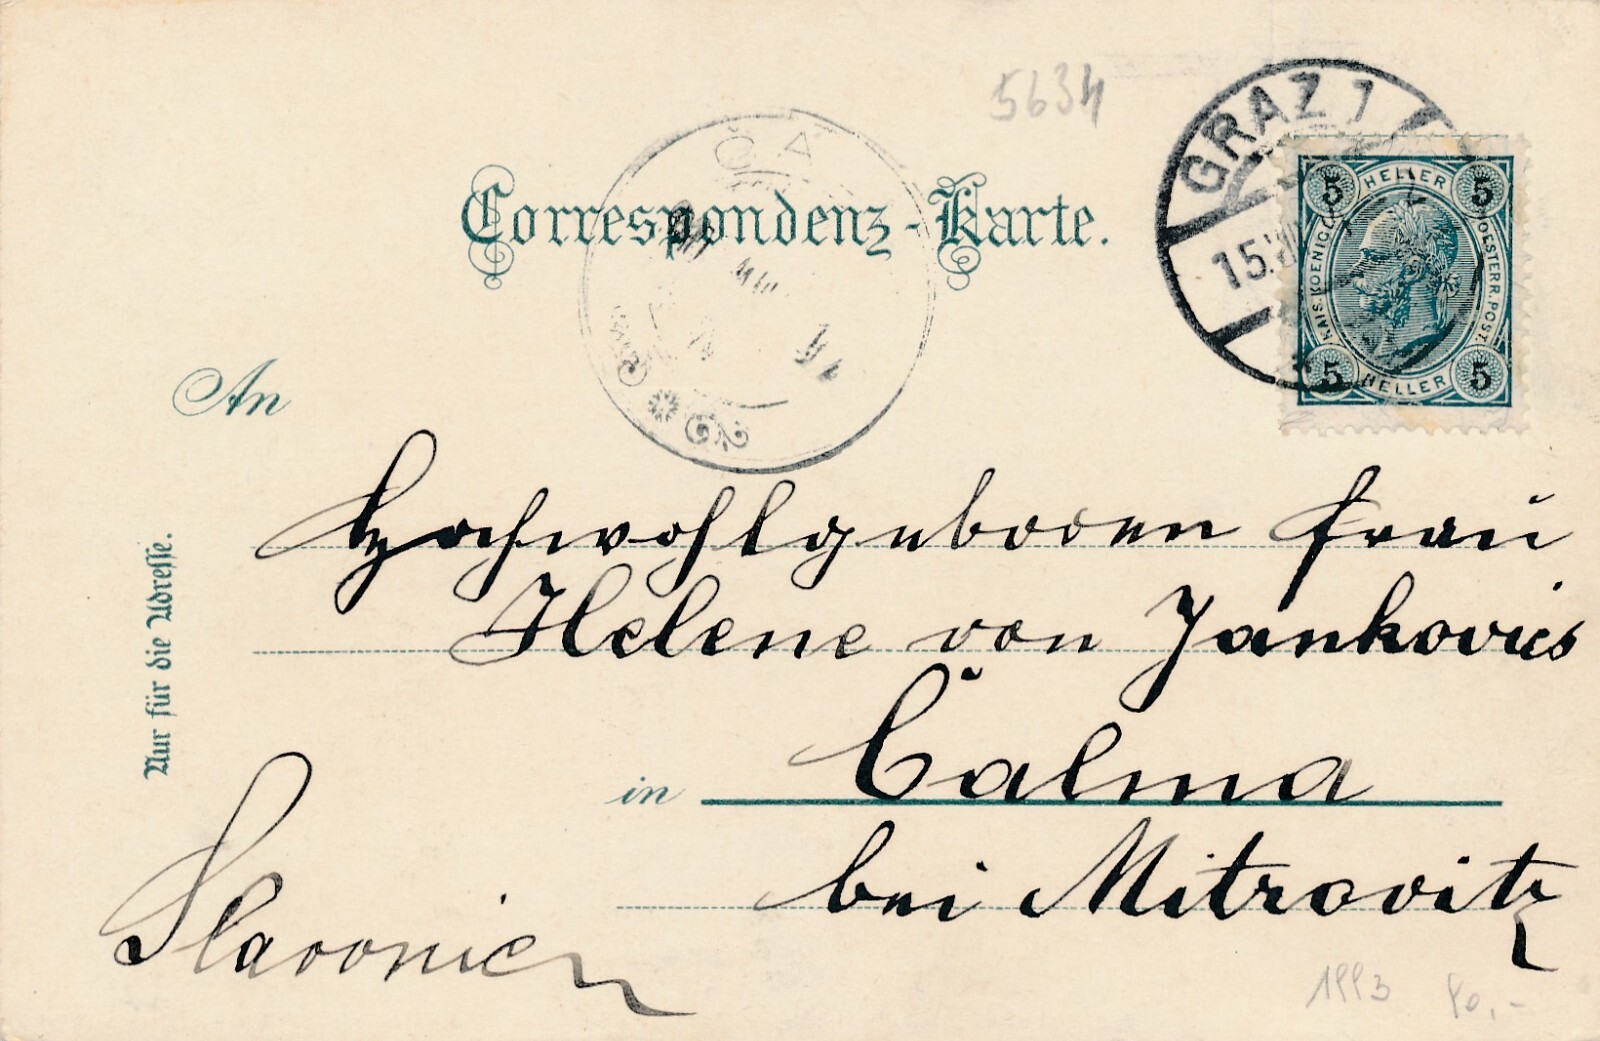 5634
GRAZ 1
15.
5 HELLER 5
KAIS. KOENIGL. OESTERR. POST.
5 HELLER 5
ČA
Correspondenz-Karte.
An
Hochwohlgeboren Frau
Helene von Jankovics
in Čalma
bei Mitrovitz
Slavonien
Nur für die Adresse.
1993